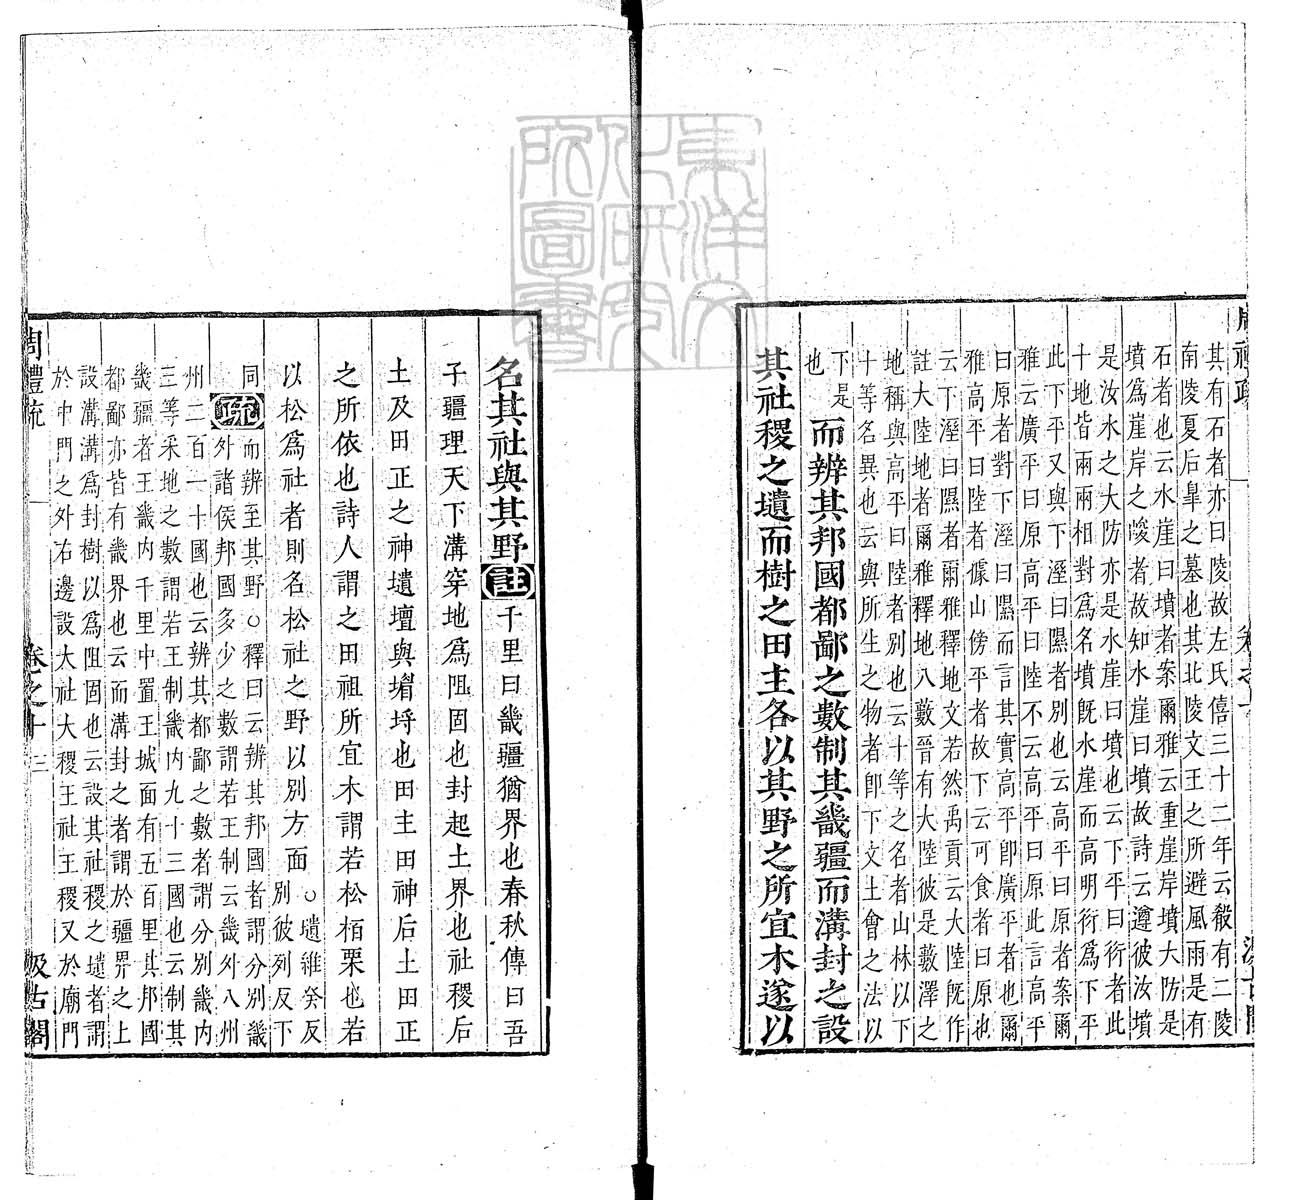 其有石者亦曰陵故左氏僖三十二年云殽有二陵
南陵夏后臯之墓也其北陵文王之所避風雨是有
石者也云水崖曰墳者案爾雅云重崖岸墳大防是
墳爲崖岸之峻者故知水崖曰墳故詩云遵彼汝墳
是汝水之大防亦是水崖曰墳也云下平曰衍者此
十地皆兩兩相對爲名墳旣水崖而高明衍爲下平
此下平又與下溼曰隰者別也云高平曰原者案爾
雅云廣平曰原高平曰陸不云高平曰原此言高平
曰原者對下溼曰隰而言其實高平卽廣平者也爾
雅高平曰陸者據山傍平者故下云可食者曰原也
云下溼曰隰者爾雅釋地文若然禹貢云大陸旣作
註大陸地者爾雅釋地八藪晉有大陸彼是藪澤之
地稱與高平曰陸者別也云十等之名者山林以下
十等名異也云與所生之物者卽下文土會之法以
下是
也
而辨其邦國都鄙之數制其畿疆而溝封之設
其社稷之壝而樹之田主各以其野之所宜木遂以
名其社與其野註千里曰畿疆猶界也春秋傳曰吾
子疆理天下溝穿地爲阻固也封起土界也社稷后
土及田正之神壝壇與堳埒也田主田神后土田正
之所依也詩人謂之田祖所宜木謂若松栢栗也若
以松爲社者則名松社之野以別方面○壝維癸反
別彼列反下
同疏而辨至其野○釋曰云辨其邦國者謂分別畿
外諸侯邦國多少之數謂若王制云畿外八州
州二百一十國也云辨其都鄙之數者謂分別畿內
三等采地之數謂若王制畿內九十三國也云制其
畿疆者王畿內千里中置王城面有五百里其邦國
都鄙亦皆有畿界也云而溝封之者謂於疆界之上
設溝溝爲封樹以爲阻固也云設其社稷之壝者謂
於中門之外右邊設大社大稷王社王稷又於廟門
周禮疏 卷之十 三 汲古閣
東洋文化研究所圖書